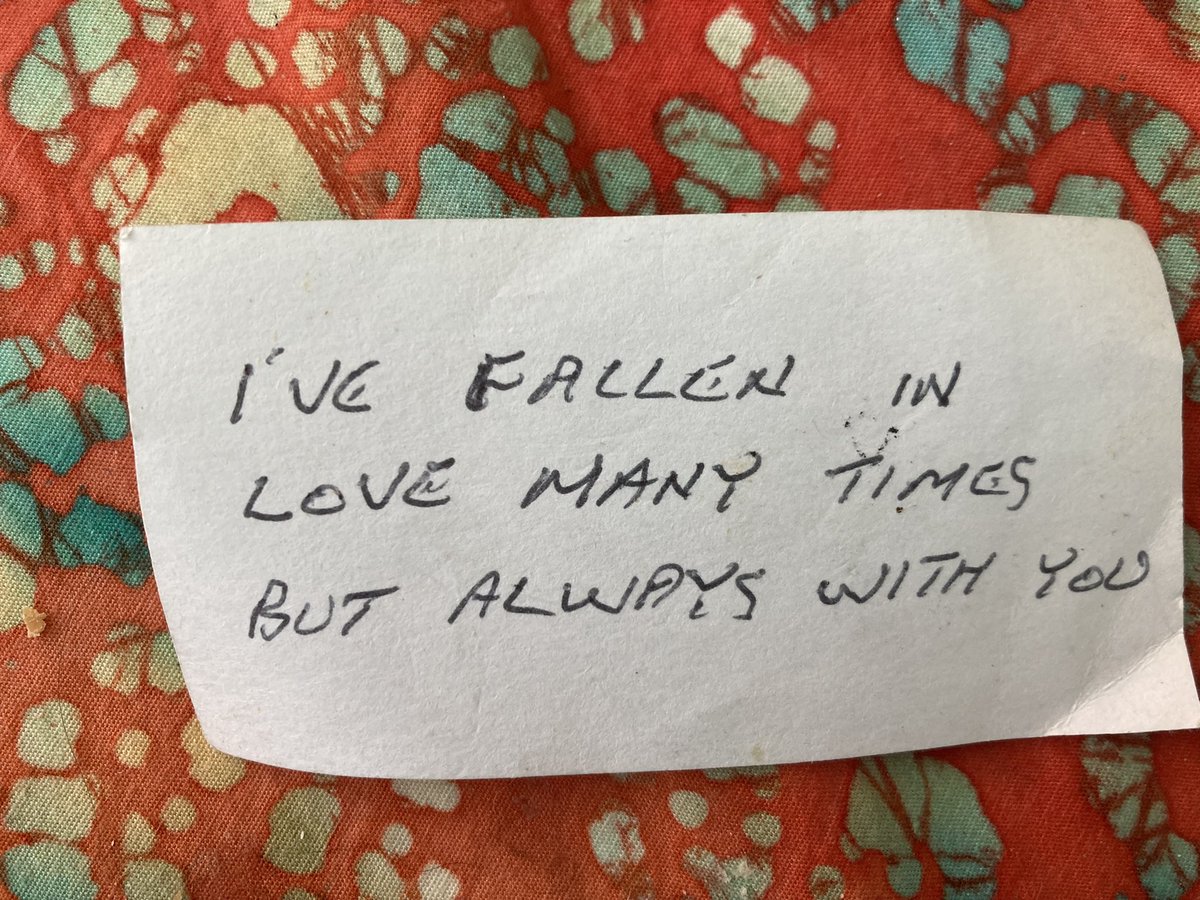 I'VE FALLEN IN
LOVE MANY TIMES
BUT ALWAYS WITH YOU